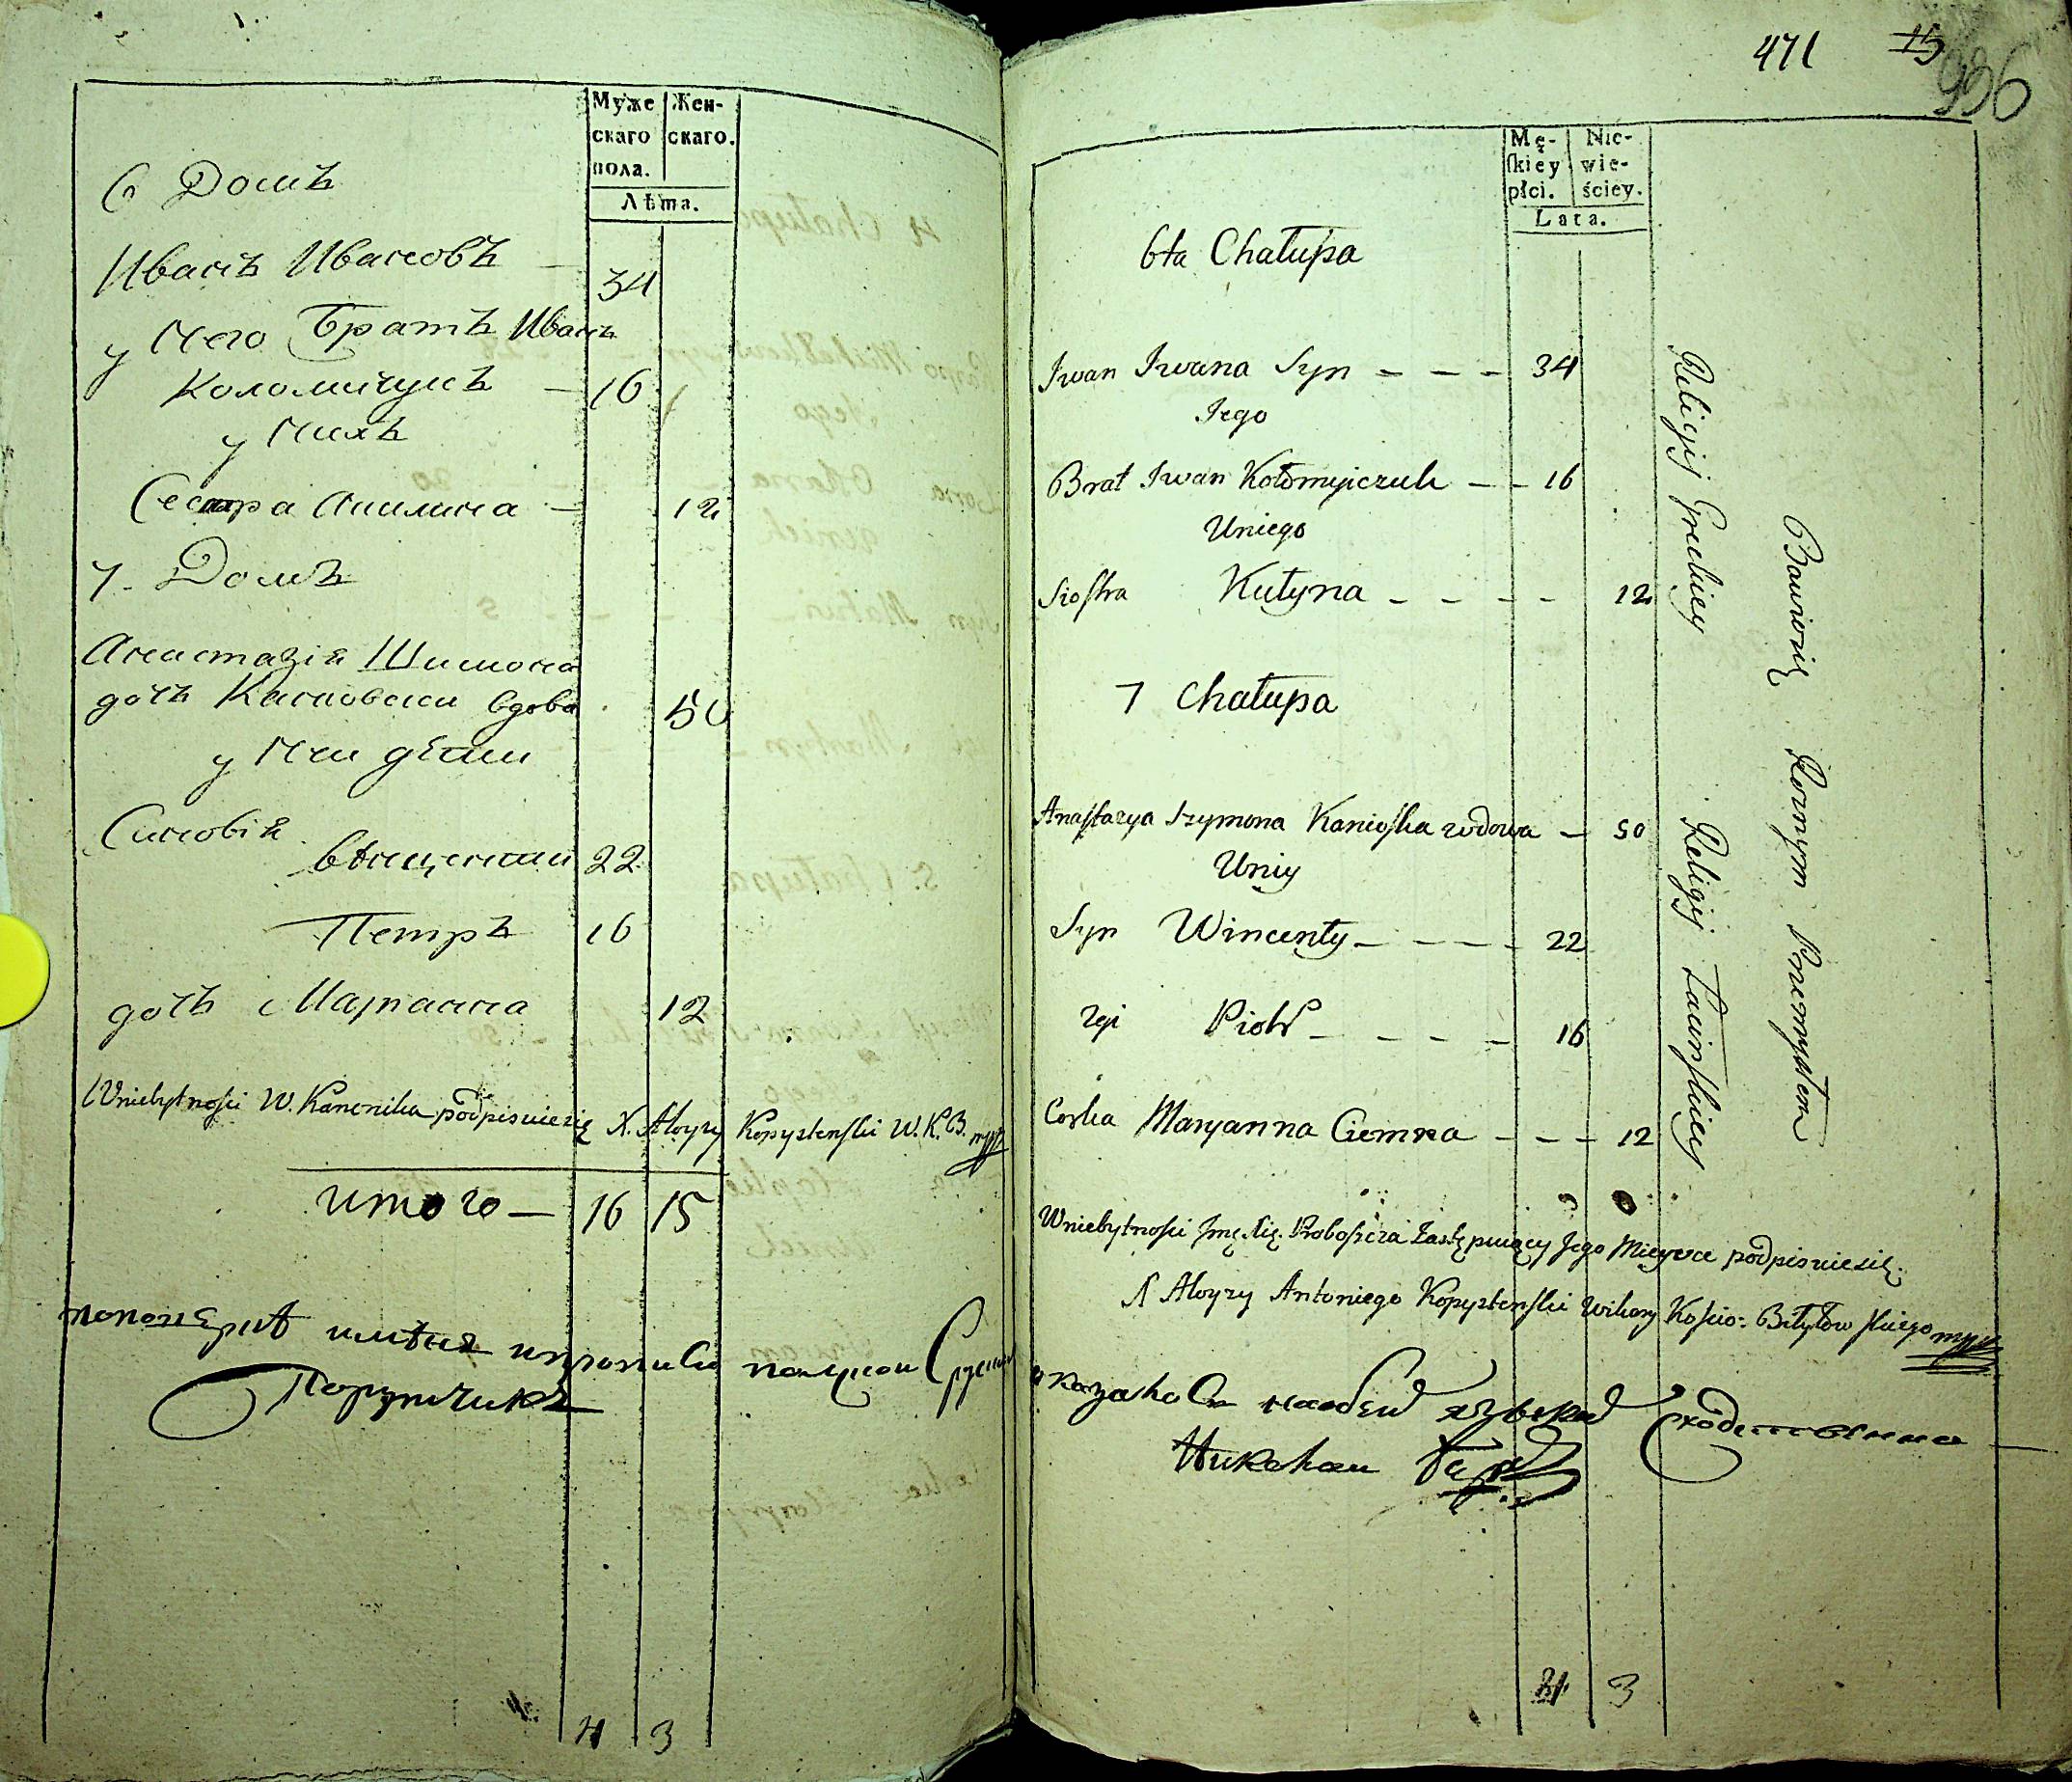 Муже
скаго
пола.
Жен-
скаго.
Лѣта.
6 Домъ
Иванъ Ивановъ — 34
у него Братъ Иванъ
Коломичукъ — 16
у нихъ
Сестра Акилина — 12
7. Домъ
Анастазія Шимона
дочь Каниовски вдова 50
у неи дѣти
Синовія
вѣнцентии 22
Петръ 16
дочь Марианна 12
Wniebytności W. Kanonika podpisuiesię X. Aloyzy Kopystenski W.K.B. mpp
итого — 16 15
имѣния
Порутчикъ
4 3
471 15
996
Mę-
skiey
płci.
Nie-
wie-
ściey.
Lata.
6ta Chałupa
Iwan Iwana Syn - - - 34
Jego
Brat Iwan Kołomyiczuk - - 16
Uniego
Siostra Kulyna - - - - 12
7 Chałupa
Anastazya Szymona Kanioska wdowa - 50
Uniy
Syn Wincenty - - - - 22
2gi Piotr - - - - 16
Corka Maryanna Ciemna - - - 12
Religij Greckiey
Religij Łacinskiey
Bawionię Roznym Przemysłem
Wniebytności Jmę. Xię. Proboszcza Zastępuiący Jego Mieysce podpisuiesię.
X Aloyzy Antoniego Kopystenski Wikary Kościo: Białyłowskiego mpp
4 3